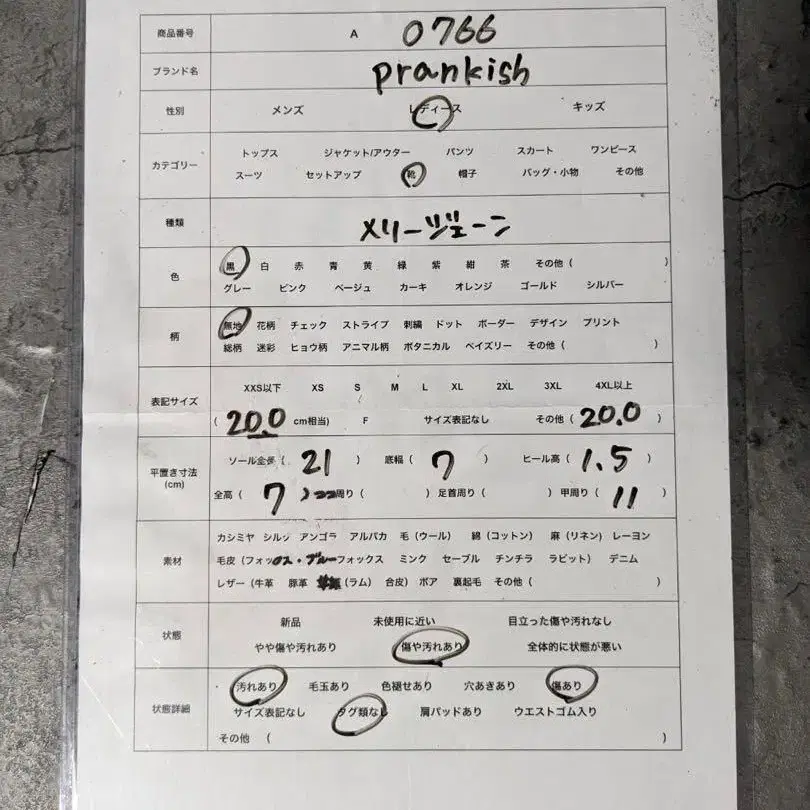 商品番号 A 0766
ブランド名 prankish
性別 メンズ レディース キッズ
カテゴリー トップス ジャケット/アウター パンツ スカート ワンピース
スーツ セットアップ 靴 帽子 バッグ・小物 その他
種類 メリージェーン
色 黒 白 赤 青 黄 緑 紫 紺 茶 その他 ( )
グレー ピンク ベージュ カーキ オレンジ ゴールド シルバー
柄 無地 花柄 チェック ストライプ 刺繍 ドット ボーダー デザイン プリント
総柄 迷彩 ヒョウ柄 アニマル柄 ボタニカル ペイズリー その他 ( )
表記サイズ XXS以下 XS S M L XL 2XL 3XL 4XL以上
( 20.0 cm相当) F サイズ表記なし その他 ( 20.0 )
平置き寸法 (cm) ソール全長 ( 21 ) 底幅 ( 7 ) ヒール高 ( 1.5 )
全高 ( 7 ) 周り ( ) 足首周り ( ) 甲周り ( 11 )
素材 カシミヤ シルク アンゴラ アルパカ 毛 (ウール) 綿 (コットン) 麻 (リネン) レーヨン
毛皮 (フォックス・ブルーフォックス ミンク セーブル チンチラ ラビット) デニム
レザー (牛革 豚革 (ラム) 合皮) ボア 裏起毛 その他 ( )
状態 新品 未使用に近い 目立った傷や汚れなし
やや傷や汚れあり 傷や汚れあり 全体的に状態が悪い
状態詳細 汚れあり 毛玉あり 色褪せあり 穴あきあり 傷あり
サイズ表記なし タグ類なし 肩パッドあり ウエストゴム入り
その他 ( )